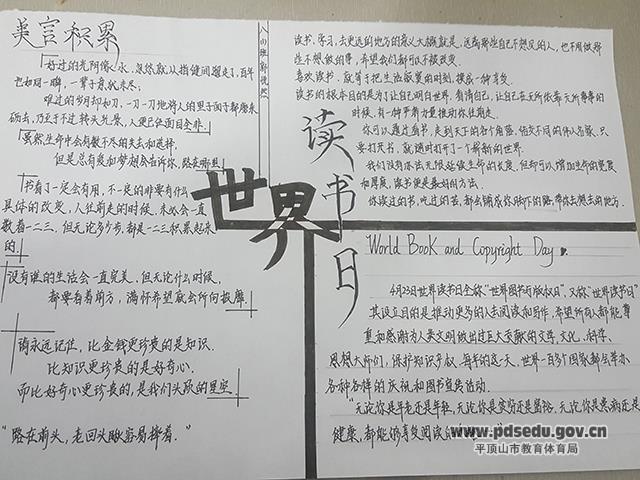 美言积累
「好过的光阴像水,忽然就从指缝间溜走了,百年
也如同一瞬,一辈子意犹未尽;
难过的岁月却如刀,一刀一刀地将人的里子面子都磨来
砺去,乃至于不过转头光景,人便已体面全非」
「虽然生命中会有数不尽的失去和选择,
但是总有爱和梦想会告诉你,路在哪里」
「书看了一定会有用,不一定的非要有什么
具体的改变,人往前走的时候,未必会一直
数着一二三,但无论多少步,都是一二三积累起来
的」
没有谁的生活会一直完美,但无论什么时候,
都要看着前方,满怀希望就会所向披靡
请永远记住,比金钱更珍贵的是知识,
比知识更珍贵的是好奇心,
而比好奇心更珍贵的,是我们头顶的星空
“路在前头,老回头瞅容易摔着。”
世界
读书日
读书,学习,去更远的地方的意义大概就是,远离那些自己不想见的人,也不用做那
些不想做的事,希望会们都可以不被改变。
喜欢读书,就等于把生活寂寞的时刻,换成一种享受。
读书的根本目的是为了让自己明白世界,看清自己,让自己在无所依靠无所事事的
时候,有一种声音力量推动你往前走。
你可以通过看书,走到天下的各个角落,结交不同的伟人名家,只
要打开书,就随时打开了一个崭新的世界。
我们没有办法无限延伸生命的长度,但却可以增加生命的宽度
和厚度,读书便是最好的方法。
你读过的书,吃过的苦,都会铺成你脚下的路,带你去想去的地方。
World Book and Copyright Day
4月23日世界读书日全称“世界图书与版权日”,又称“世界读书日”
其设立目的是推动更多的人去阅读和写作,希望所有人都能尊
重和感谢为人类文明做出过巨大贡献的文学、文化、科学、
思想大师们,保护知识产权,每年的这一天,世界一百多个国家都会举办
各种各样的庆祝和图书宣传活动.
“无论你是年老还是年轻,无论你是贫穷还是富裕,无论你是患病还是
健康,都能够享受阅读的
www.pdsedu.gov.cn
平顶山市教育体育局